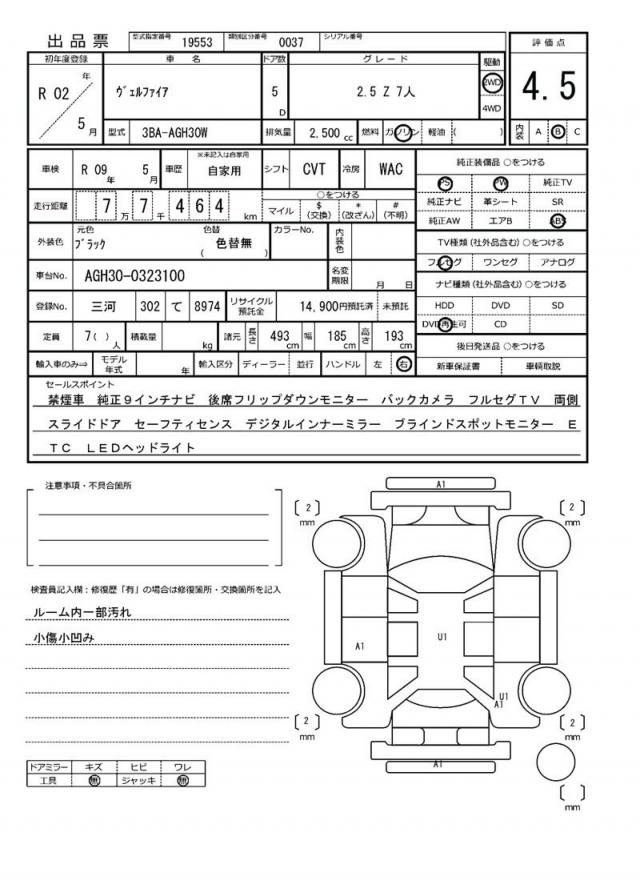 出品票 型式指定番号 19553 類別区分番号 0037 シリアル番号
初年度登録 車名 ドア数 グレード 駆動 評価点
R 02 年 5 月 ヴェルファイア 5 D 2.5 Z 7人 2WD 4WD 4.5
型式 3BA-AGH30W 排気量 2,500 cc 燃料 ガソリン 軽油 ( ) 内装 A B C
車検 R 09 年 5 月 車歴 ※未記入は自家用 自家用 シフト CVT 冷房 WAC 純正装備品 ○をつける
PS PW 純正TV
走行距離 7 万 7 千 4 6 4 km ○をつける マイル $ (交換) * (改ざん) # (不明) 純正ナビ 革シート SR
純正AW エアB ABS
外装色 元色 ブラック 色替 ( 色替無 ) カラーNo. 内装色 TV種類 (社外品含む) ○をつける
フルセグ ワンセグ アナログ
車台No. AGH30-0323100 名変期限 月 日 ナビ種類 (社外品含む) ○をつける
登録No. 三河 302 て 8974 リサイクル預託金 14,900円預託済 未預託 HDD DVD SD
DVD再生可 CD
定員 7( ) 人 積載量 kg 諸元 長さ 493 cm 幅 185 cm 高さ 193 cm 後日発送品 ○をつける
輸入車のみ⇒ モデル年式 年 輸入区分 ディーラー 並行 ハンドル 左 右 新車保証書 車輌取説
セールスポイント
禁煙車 純正9インチナビ 後席フリップダウンモニター バックカメラ フルセグTV 両側
スライドドア セーフティセンス デジタルインナーミラー ブラインドスポットモニター E
TC LEDヘッドライト
注意事項・不具合箇所
検査員記入欄:修復歴「有」の場合は修復箇所・交換箇所を記入
ルーム内一部汚れ
小傷小凹み
ドアミラー キズ ヒビ ワレ
工具 無 ジャッキ 無
A1
[ 2 ] mm [ 2 ] mm
U1
A1
U1
A1
[ 2 ] mm [ 2 ] mm
A1
[ ] mm